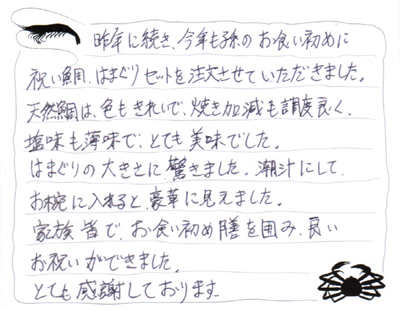 昨年に続き、今年も孫のお食い初めに
祝い鯛、はまぐりセットを注文させていただきました。
天然鯛は、色もきれいで、焼き加減も調度良く、
塩味も薄味で、とても美味でした。
はまぐりの大きさに驚きました。潮汁にして、
お椀に入れると豪華に見えました。
家族皆で、お食い初め膳を囲み、良い
お祝いができました。
とても感謝しております。